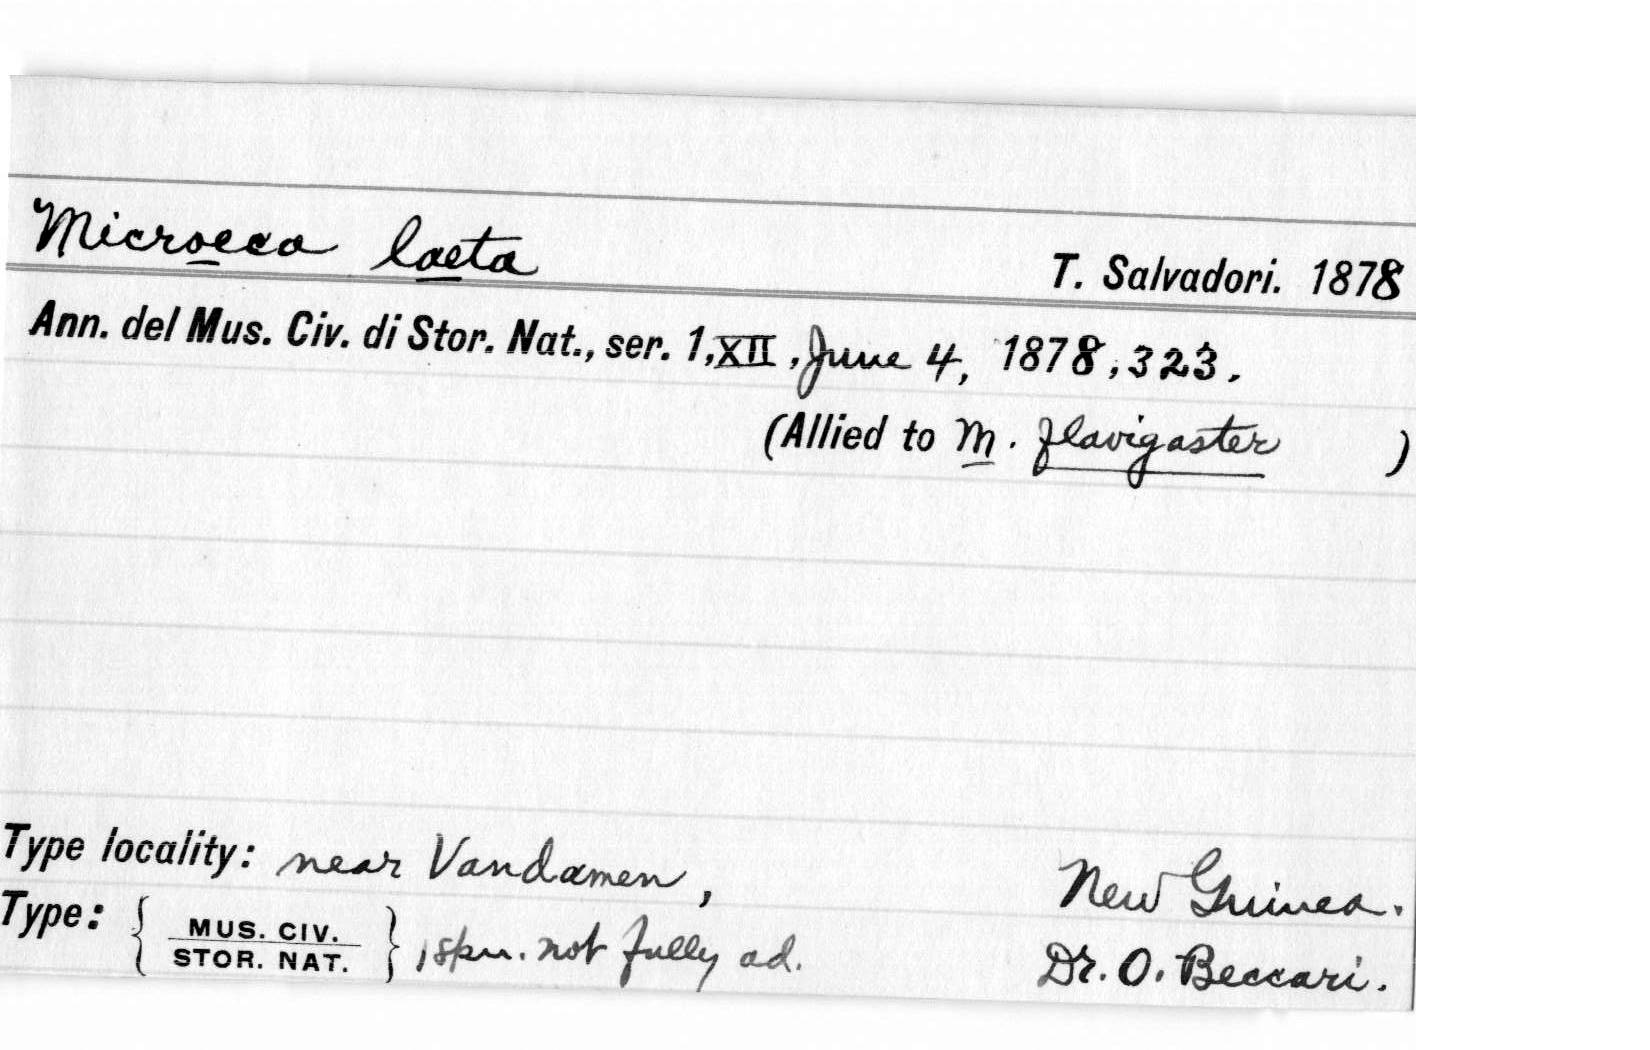 Microeca laeta T. Salvadori. 1878
Ann. del Mus. Civ. di Stor. Nat., ser. 1, XII, June 4, 1878, 323.
(Allied to M. flavigaster )
Type locality: near Vandamen, New Guinea.
Type: { MUS. CIV. STOR. NAT. } 1 spm. not fully ad. Dr. O. Beccari.